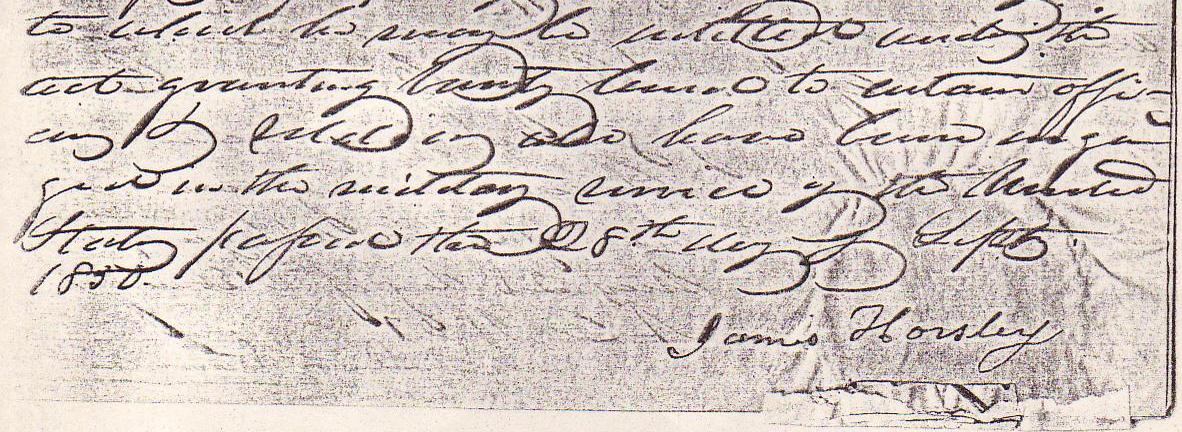 to which he may be intitled under the
act granting bounty land to certain offi-
cers & soldiers who have been inga
ged in the military service of the United
States passed the 28th day of Sept.
1850.
James Horsley